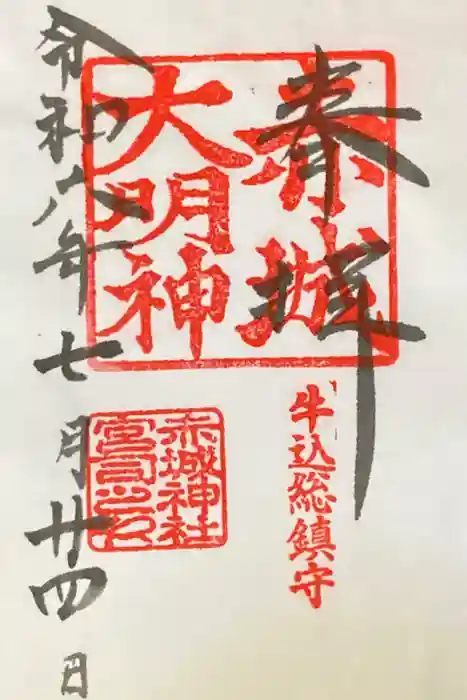 奉拝
赤城
大明神
牛込総鎮守
赤城神社
宮司之印
令和六年七月廿四日